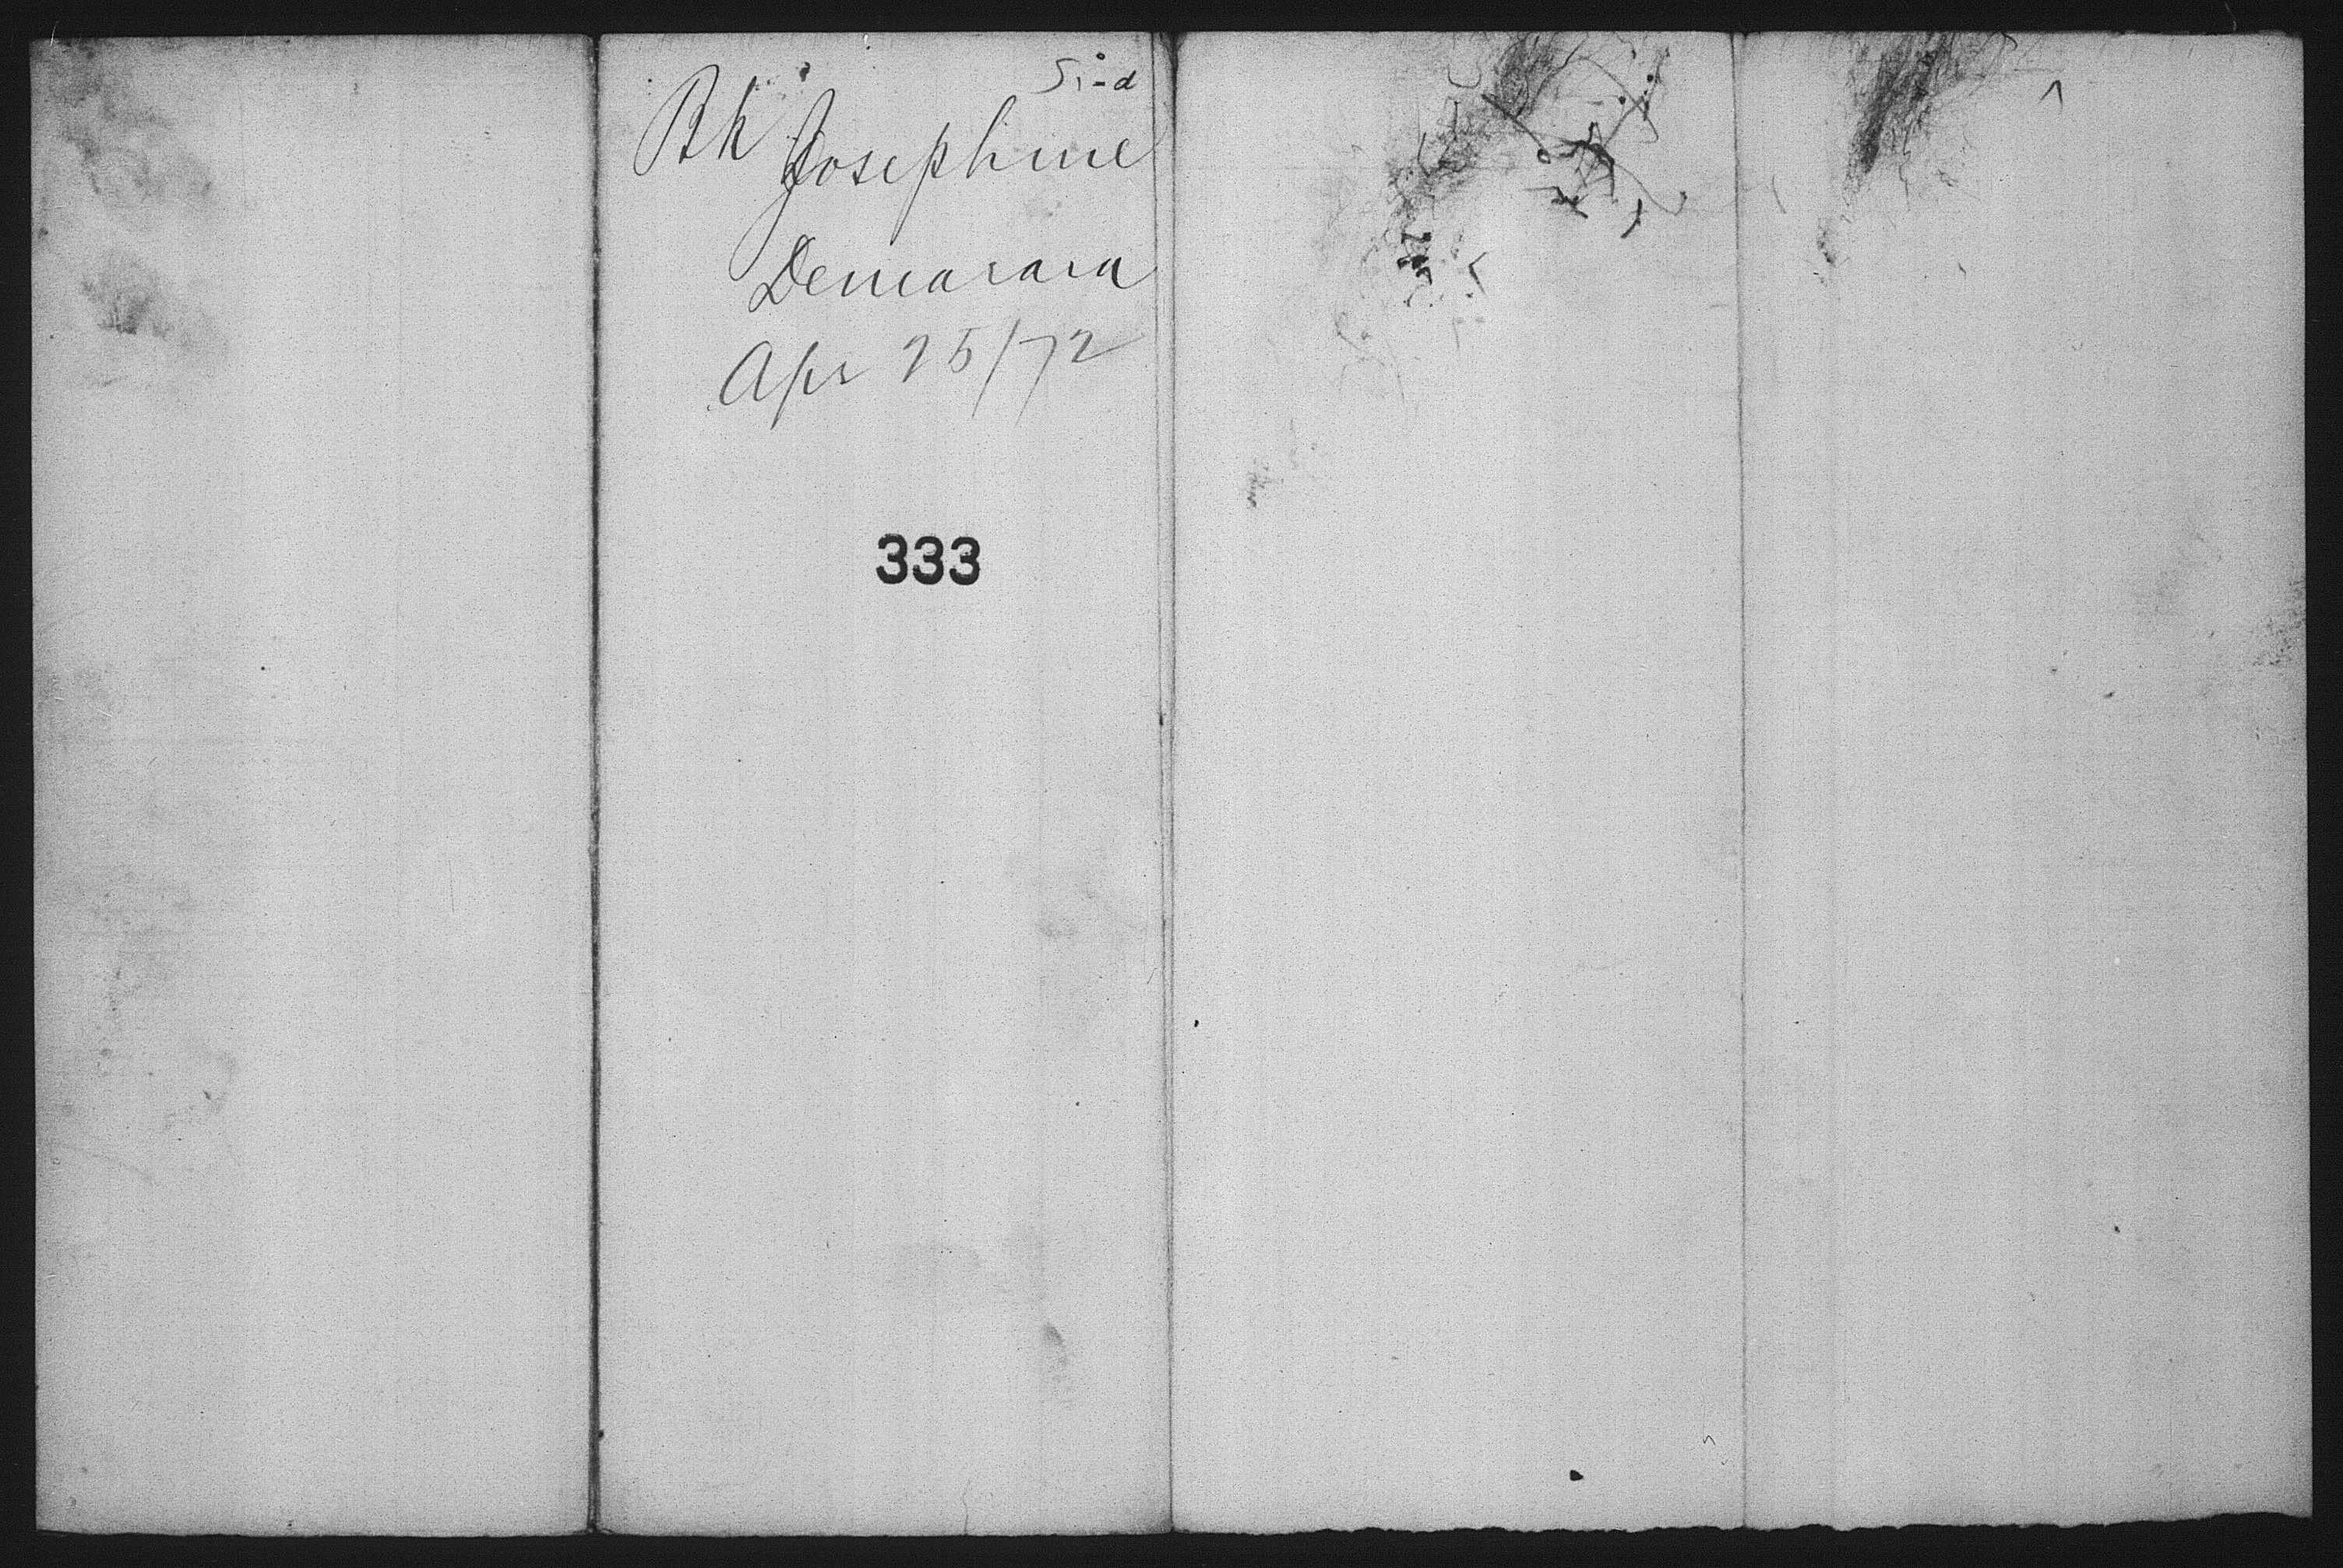 Bk Josephine
Demarara
Apr 25/72
333